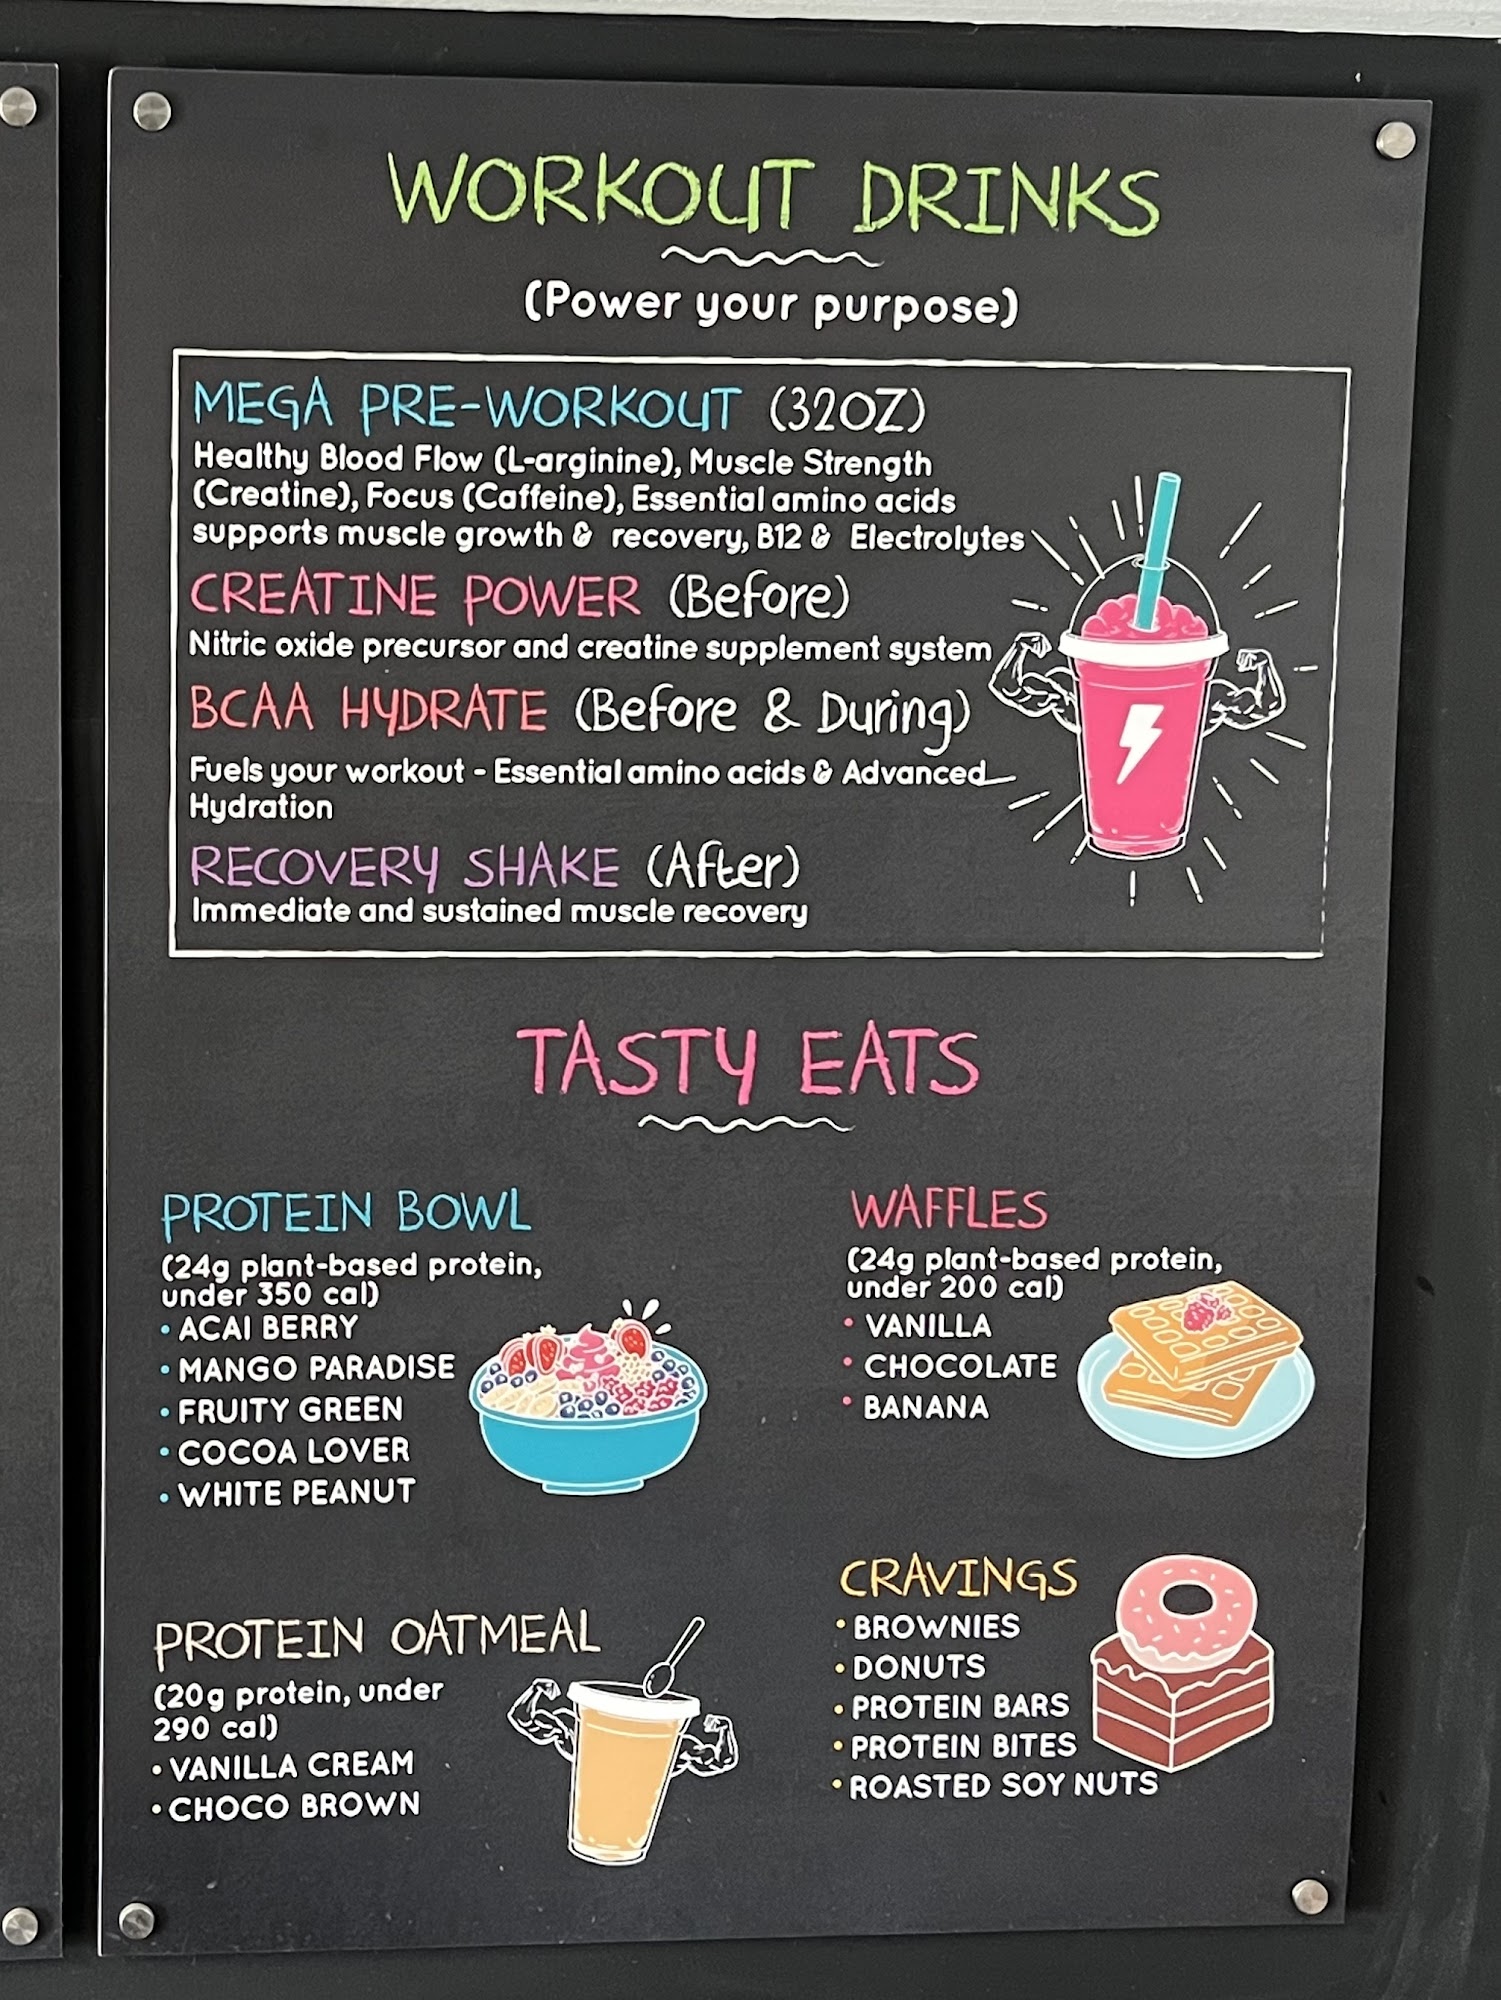 WORKOUT DRINKS
(Power your purpose)
MEGA PRE-WORKOUT (32OZ)
Healthy Blood Flow (L-arginine), Muscle Strength
(Creatine), Focus (Caffeine), Essential amino acids
supports muscle growth & recovery, B12 & Electrolytes
CREATINE POWER (Before)
Nitric oxide precursor and creatine supplement system
BCAA HYDRATE (Before & During)
Fuels your workout - Essential amino acids & Advanced
Hydration
RECOVERY SHAKE (After)
Immediate and sustained muscle recovery
TASTY EATS
PROTEIN BOWL
(24g plant-based protein,
under 350 cal)
• ACAI BERRY
• MANGO PARADISE
• FRUITY GREEN
• COCOA LOVER
• WHITE PEANUT
WAFFLES
(24g plant-based protein,
under 200 cal)
• VANILLA
• CHOCOLATE
• BANANA
PROTEIN OATMEAL
(20g protein, under
290 cal)
• VANILLA CREAM
• CHOCO BROWN
CRAVINGS
• BROWNIES
• DONUTS
• PROTEIN BARS
• PROTEIN BITES
• ROASTED SOY NUTS